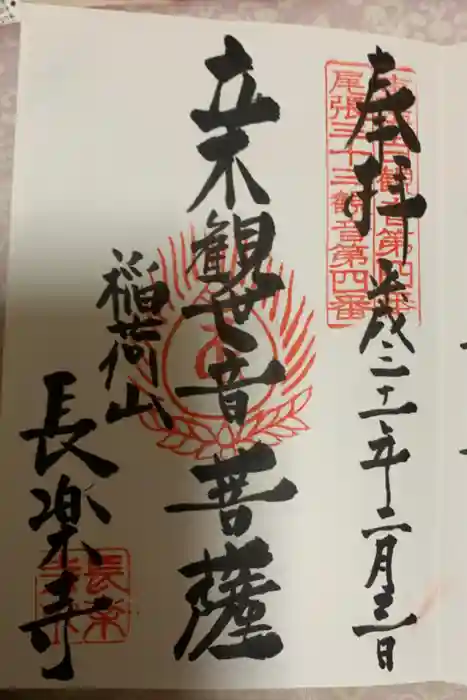 奉拝 歳二十一年二月三日
観音第四番
尾張三十三観音第四番
立木観世音菩薩
稲荷山
長楽寺
長楽